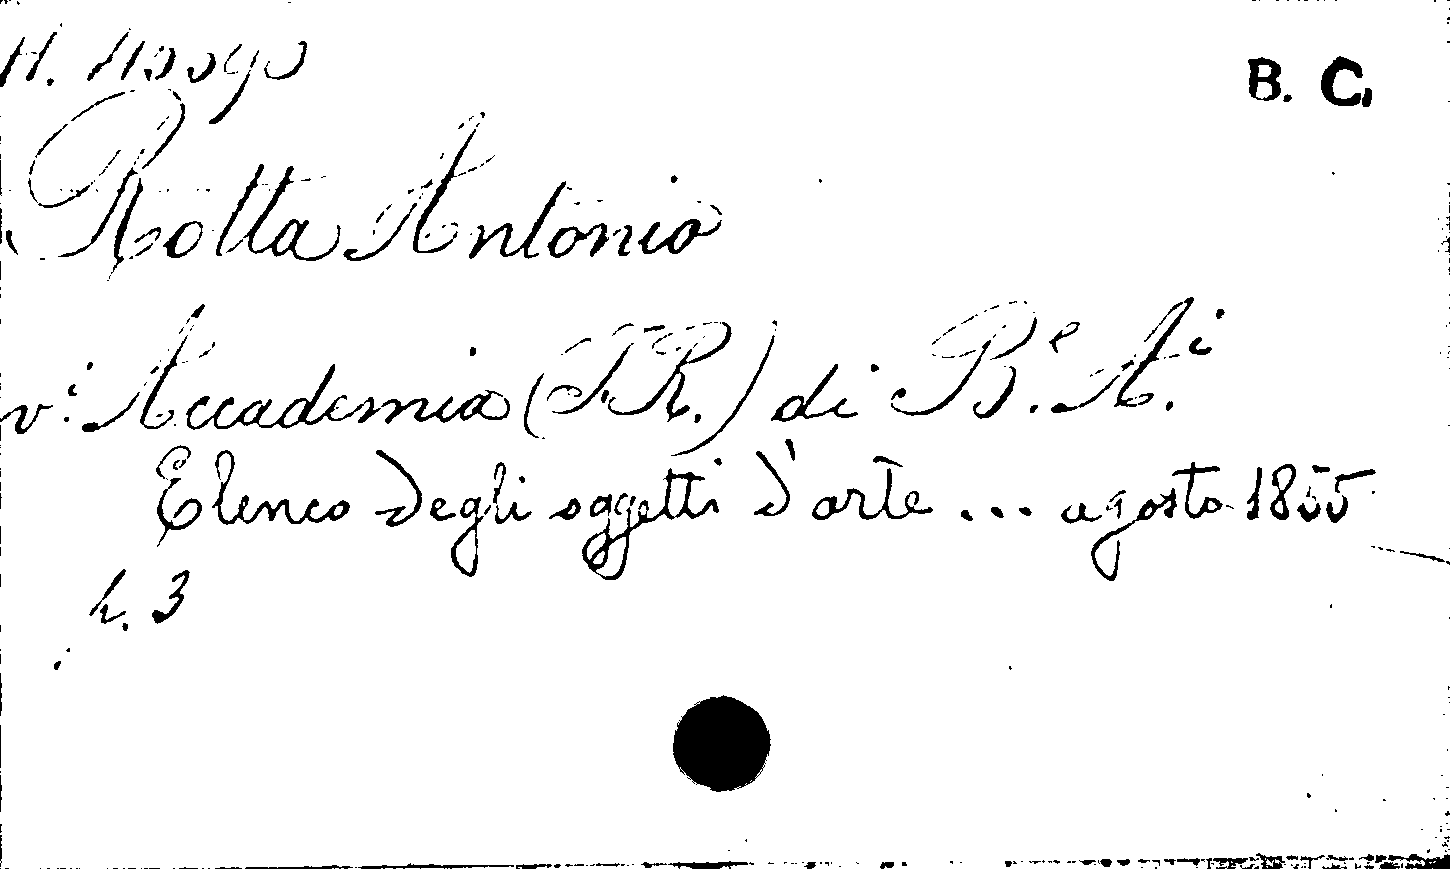 B. C.
Rotta Antonio
v.i Accademia (I. R.) di B.e A.i
Elenco degli oggetti d'arte ... agosto 1855
p. 3